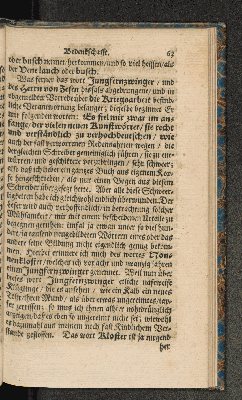 Bedenkschrift. 63
oder busch nennet/herkommen/und so viel heissen/als
der Bene lauch oder busch.
Was ferner das wort Jungfernzwinger / und
des Herrn von Zesen dißfals abgebrungene / und in
obgemeldten Vortrab über die Kriegsarbeit befind-
liche Verantwortung belanget; dieselbe beginnet Er
mit folgenden worten: Es fiel mir zwar im an-
fange/der vielen neuen Kunstwörter/sie recht
und verständlich zu verhochdeutschen / wie
auch der fast verworrenen Redensahrten wegen / die
dergleichen Schreiber gemeiniglich führen / sie zu ent-
würren/und geschikter vorzubringen/sehr schweer;
als daß ich ehmals ein gantzes Buch aus eigenem Kopfe
so hingeschrieben / als nur einen Bogen aus diesem
Schreiber übergesetzt hette. Aber alle diese Schwee-
rigkeiten hab ich gleichwohl endlich überwunden. Der
Leser wird auch verhoffendlich / in betrachtung solcher
Mühsamkeit / mir mit einem bescheidenen Urteile zu
begegnen geruhen: imfal ja etwan unter so viel hun-
dert/ja tausend neugebildeten Wörtern eines oder das
andere seine Bildung nicht eigendlich genug bekom-
men. Hierbei erinnere ich mich des wortes Non-
nenkloster/welches ich vor acht und zwantzig Jahren
einen Jungfernzwinger genennet. Weil nun über
dieses wort Jungfernzwinger etliche naseweise
Klüglinge / die es ansehen / wie ein Kalb ein neues
Tohr / ihren Mund / als über etwas ungereimtes/lau-
ter zerrissen; so mus ich ihnen alhier wohrdrünglich
anzeigen/daß es eben so ungereimt nicht sei; wiewohl
es dazumahl aus meinem noch fast Kindlichem Ver-
stande geflossen. Das wort Kloster ist ja nirgend
her